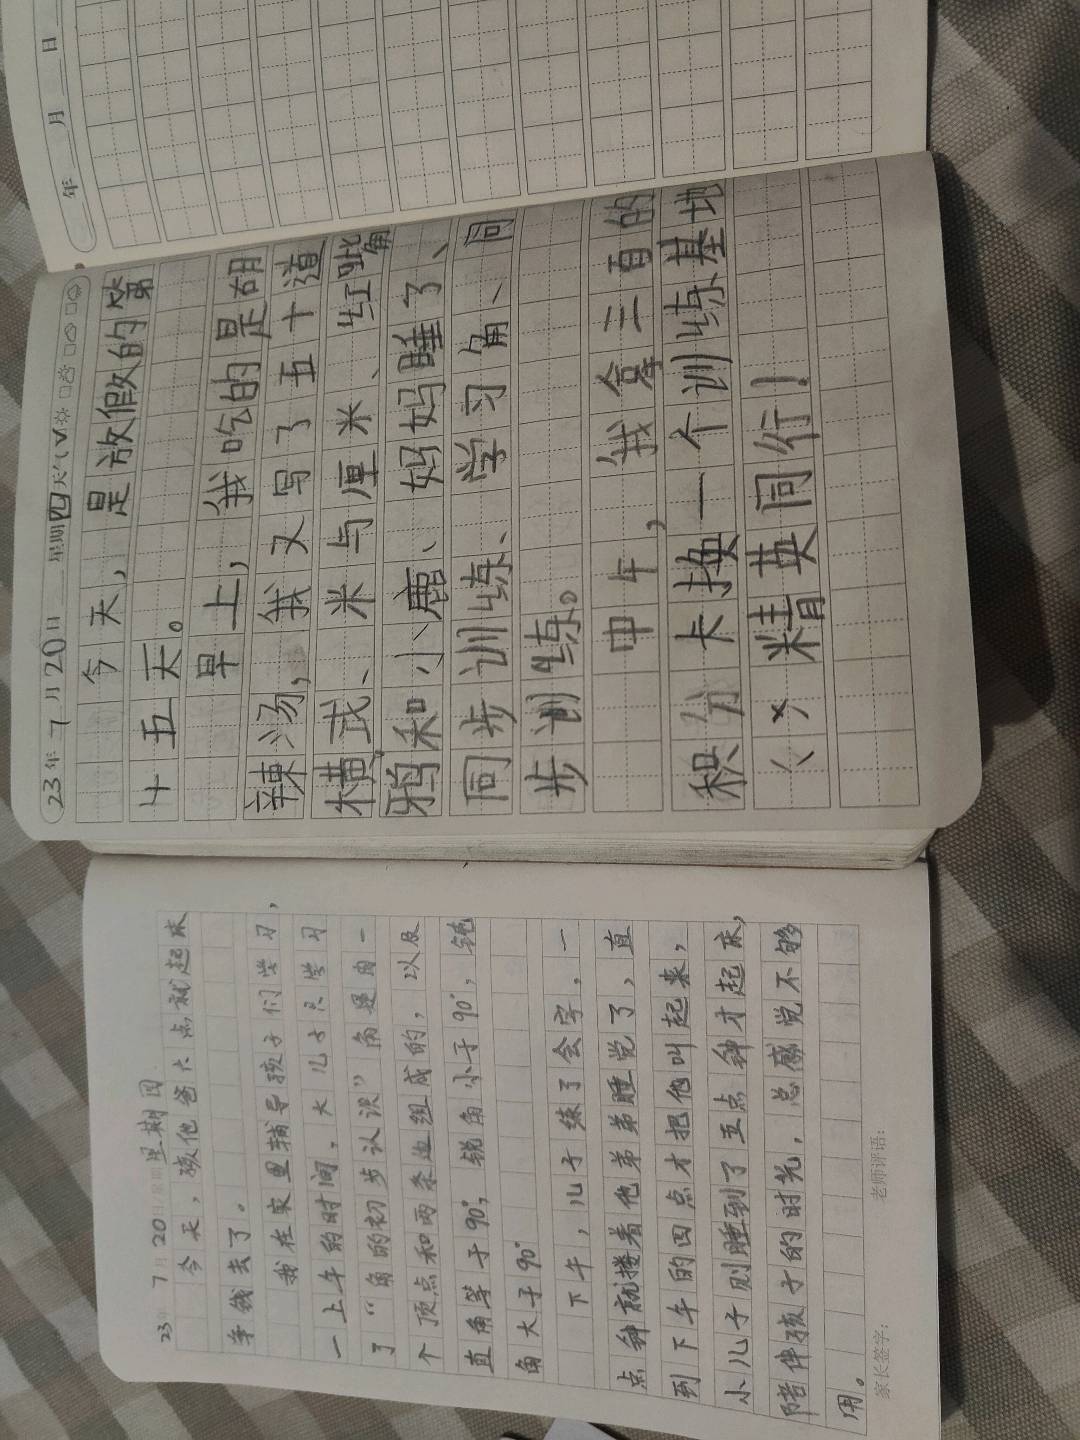 年 月 日
23年 7月20日 星期四 天气
今天，是放假的第
十五天。
早上，我吃的是胡
辣汤，我又写了五十道
横式、米与厘米、红嘴
鸦和小鹿、妈妈睡了、
同步训练、学习角、同
步训练。
中午，我拿三百的
积分卡换一个训练基地
《×精英同行！
23年 7月20日 星期 星期四
今天，孩他爸六点就起床
争钱去了。
我在家里辅导孩子们学习，
一上午的时间，大儿子只学习
了“角的初步认识”角是由一
个顶点和两条边组成的，以及
直角等于90°，锐角小于90°，钝
角大于90°
下午，儿子练了会字，一
点钟就搂着他弟弟睡觉了，直
到下午的四点才把他叫起来，
小儿子则睡到了五点钟才起床，
陪伴孩子的时光，总感觉不够
用。
家长签字： 老师评语：